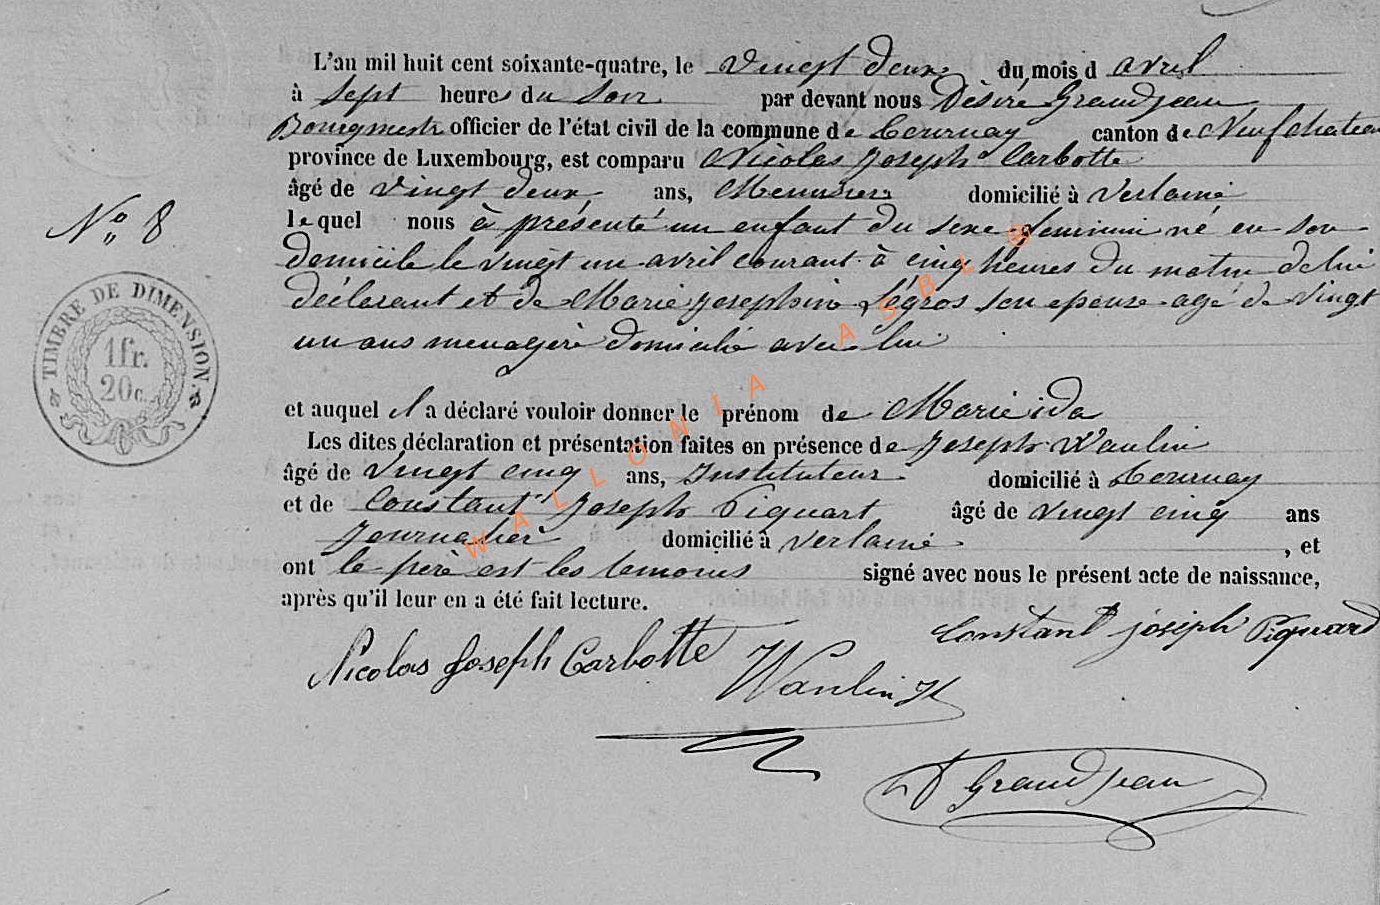 L'an mil huit cent soixante-quatre, le vingt deux du mois d avril
à sept heures du soir par devant nous Désiré Grandjean
Bourgmestre officier de l'état civil de la commune de Tournay canton de Neufchateau
province de Luxembourg, est comparu Nicolas Joseph Carbotte
âgé de vingt deux ans, Menusier domicilié à Verlaine
lequel nous à présenté un enfant du sexe feminin né en son
N° 8
domicile le vingt un avril courant à cinq heures du matin de lui
déclarant et de Marie Josephine Legros son epouse agé de vingt
un ans menagère domicilié avec lui
TIMBRE DE DIMENSION.
1fr.
20c.
et auquel il a déclaré vouloir donner le prénom de Marie ida
Les dites déclaration et présentation faites en présence de Joseph Waulin
âgé de vingt cinq ans, Instituteur domicilié à Tournay
et de Constant Joseph Piquart âgé de vingt cinq ans
Journalier domicilié à Verlaine , et
ont le père est les temoins signé avec nous le présent acte de naissance,
après qu'il leur en a été fait lecture.
Constant joseph Piquard
Nicolas Joseph Carbotte Waulin
D Grandjean
WALLONIA ASBL ®